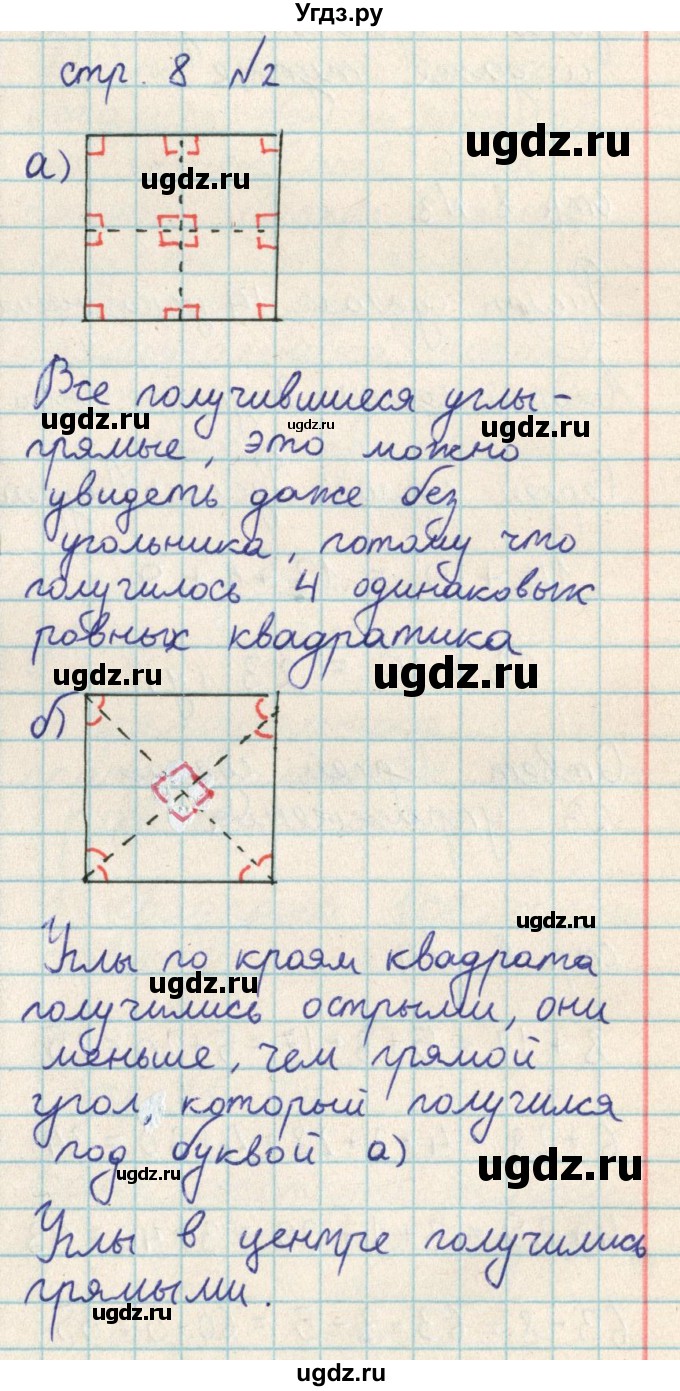 Угдз.ру
стр. 8 №2
ugdz.ru
а)
ugdz.ru
Все получившиеся углы -
ugdz.ru ugdz.ru ugdz.ru
прямые, это можно
увидеть даже без
угольника, потому что
получилось 4 одинаковых
ровных квадратика
ugdz.ru ugdz.ru
б)
ugdz.ru
Углы по краям квадрата
ugdz.ru
получились острыми, они
меньше, чем прямой
угол, который получился
под буквой а)
ugdz.ru ugdz.ru
Углы в центре получились
прямыми.
ugdz.ru
ugdz.ru